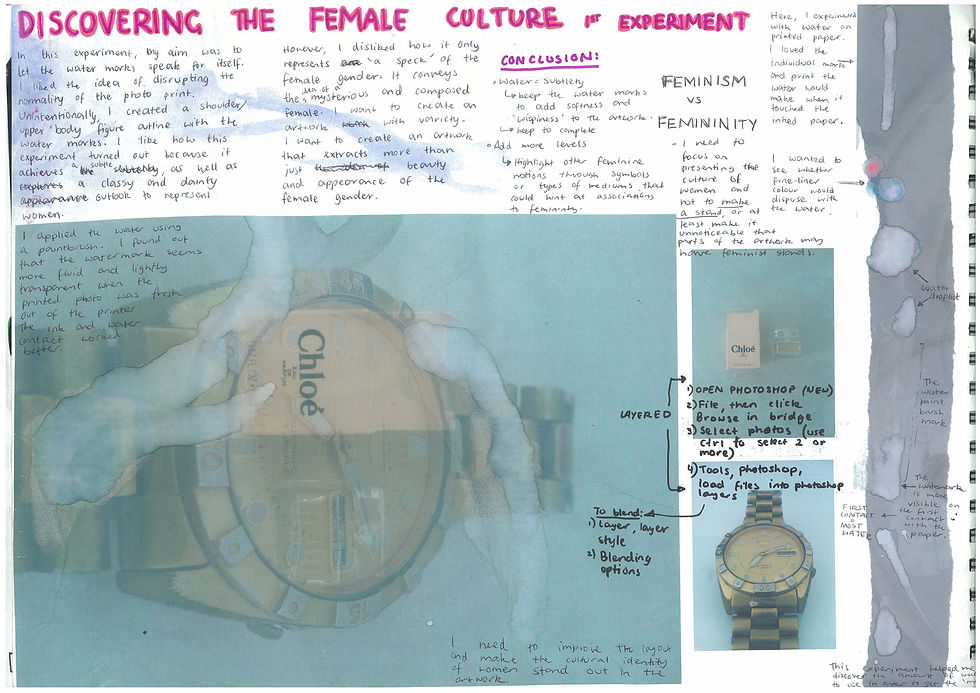 DISCOVERING THE FEMALE CULTURE 1ST EXPERIMENT
In this experiment, my aim was to
let the water marks speak for itself.
I liked the idea of disrupting the
normality of the photo print.
Unintentionally, I created a shoulder/
upper body figure outline with the
water marks. I like how this
experiment turned out because it
achieves a subtle, as well as
a classy and dainty
appearance outlook to represent
women.
However, I disliked how it only
represents 'a speck' of the
female gender. It conveys
the idea of a mysterious and composed
female. I want to create an
artwork with variety.
I want to create an artwork
that extracts more than
just beauty
and appearance of the
female gender.
CONCLUSION:
Water = Subtlety
keep the water marks
to add softness and
'wispiness' to the artwork.
keep to complete
Add more levels
Highlight other feminine
notions through symbols
or types of mediums that
could hint at associations
to femininity.
FEMINISM
VS
FEMININITY
I need to
focus on
presenting the
culture of
women and
not to make
a stand, or at
least make it
unnoticeable that
parts of the artwork may
have feminist stands.
Here, I experimented
with water on
printed paper.
I loved the
individual mark
and print the
water would
make when it
touched the
inked paper.
I wanted to
see whether
fine-liner
colour would
dispuse with
the water.
Water
droplet
The
water
paint
brush
mark
The
watermark
is more
visible on
the first
contact
with the
paper.
FIRST
CONTACT
=
MOST
WATER
This experiment helped me
discover the amount of
to use in order to get the
I applied the water using
a paintbrush. I found out
that the watermark seems
more fluid and lightly
transparent when the
printed photo was fresh
out of the printer.
The ink and water
contact worked
better.
Chloé
EAU
DE
PARFUM
15
Chloé
LAYERED
1) OPEN PHOTOSHOP (NEW)
2) File, then click
Browse in bridge
3) Select photos (use
ctrl to select 2 or
more)
4) Tools, photoshop,
load files into photoshop
layers
To blend:
1) layer, layer
style
2) Blending
options
30
I need to improve the layout
and make the cultural identity
of women stand out in the
artwork.